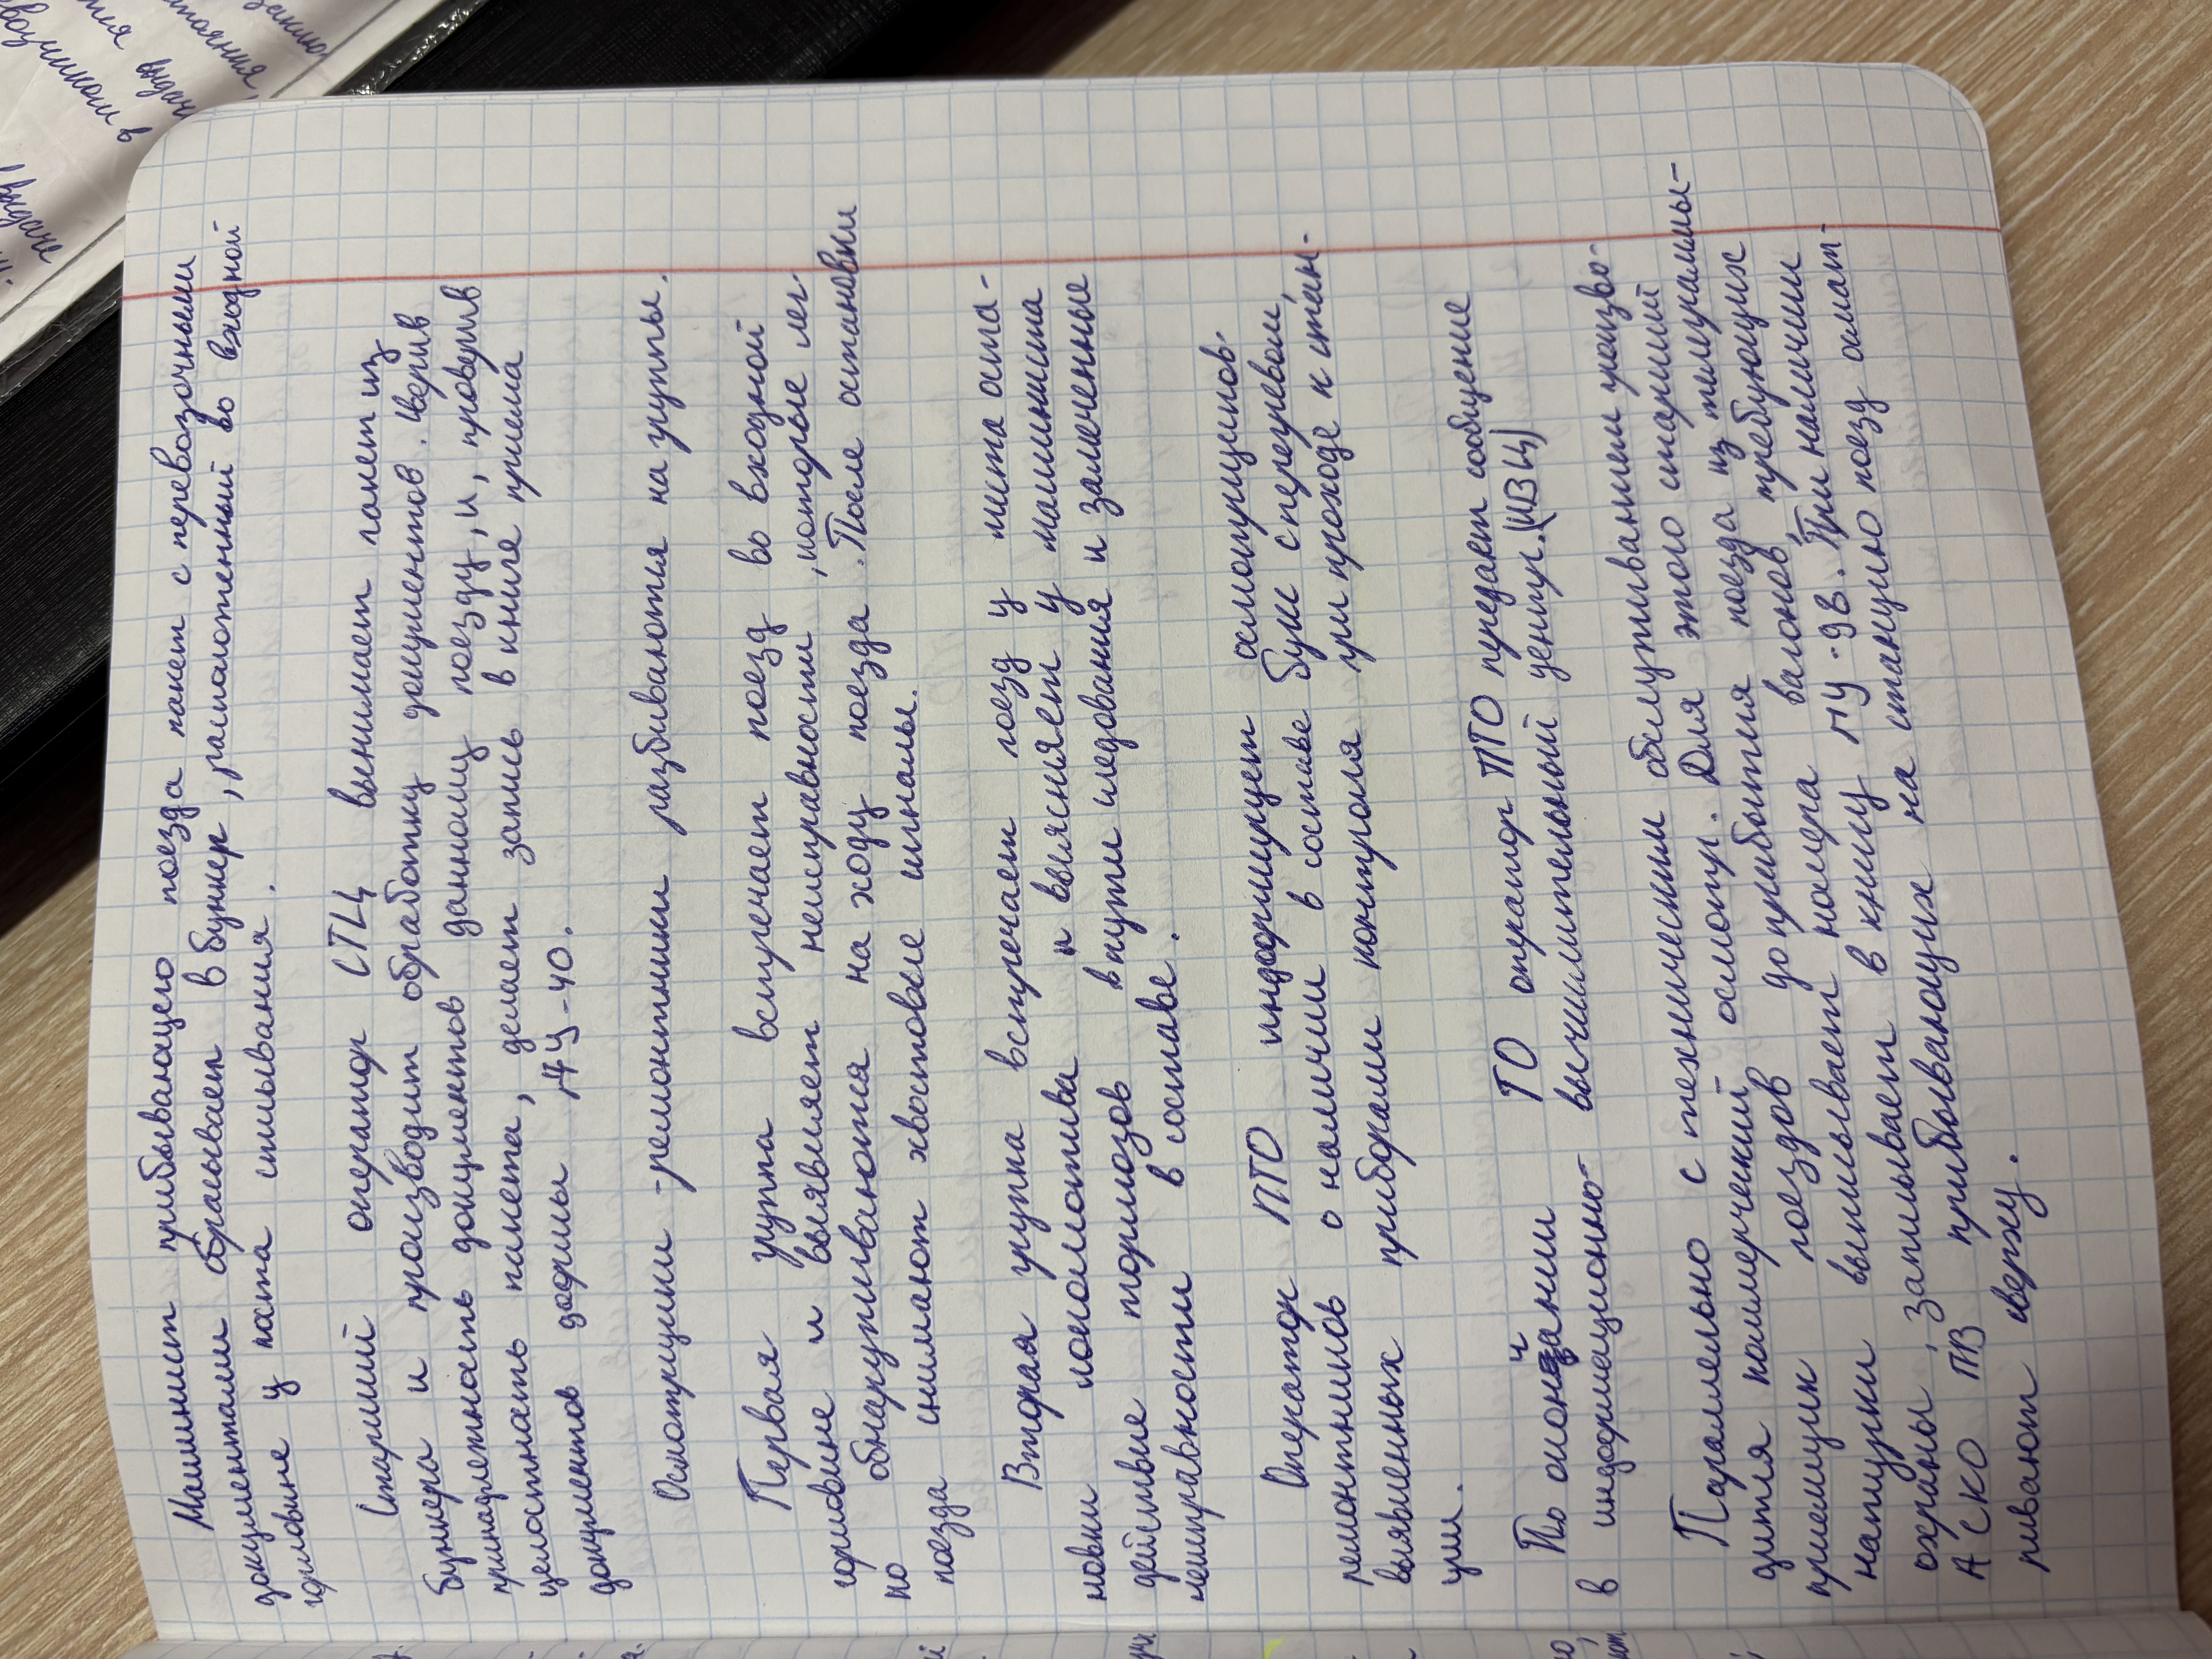 Машинист прибывающего поезда пакет с перевозочными
документами сбрасывает в бункер, расположенный во входной
горловине у поста списывания.
Старший оператор СТЦ вынимает пакет из
бункера и производит обработку документов. Сверив
принадлежность документов данному поезду, и, проверив
целостность пакета, делает запись в книге приема
документов формы ДУ-40.
Осмотрщики-ремонтники разбиваются на группы.
Первая группа встречает поезд во входной
горловине и выявляет неисправности, которые лег-
ко обнаруживаются на ходу поезда. После остановки
поезда снимают хвостовые сигналы.
Вторая группа встречает поезд у места оста-
новки локомотива и выясняет у машиниста
действие тормозов в пути следования и замеченные
неисправности в составе.
Оператор ПТО информирует осмотрщиков-
ремонтников о наличии в составе букс с перегревом,
выявленных приборами контроля при проходе к стан-
ции.
По окончании ТО оператор ПТО передает сообщение
в информационно-вычислительный центр. (ИВЦ)
Параллельно с техническим обслуживанием произво-
дится коммерческий осмотр. Для этого старший
приемщик поездов до прибытия поезда из телеграммы-
натурки выписывает номера вагонов, требующих
охраны, записывает в книгу ГУ-98. При наличии
АСКО ПВ прибывающих на станцию поезд осмат-
ривают сверху.